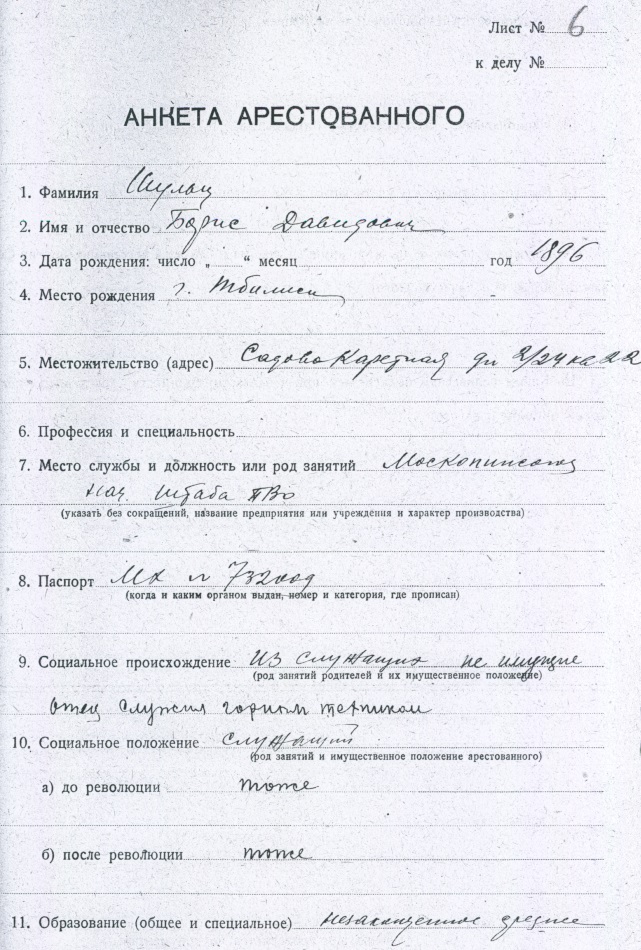 Лист № 6
к делу №
АНКЕТА АРЕСТОВАННОГО
1. Фамилия Шульц
2. Имя и отчество Борис Давидович
3. Дата рождения: число „ “ месяц год 1896
4. Место рождения г. Тбилиси
5. Местожительство (адрес) Садово Каретная 2/24 22
6. Профессия и специальность
7. Место службы и должность или род занятий
Нач. Штаба ПВО
(указать без сокращений, название предприятия или учреждения и характер производства)
8. Паспорт
(когда и каким органом выдан, номер и категория, где прописан)
9. Социальное происхождение Из служащих не имущие
(род занятий родителей и их имущественное положение)
Отец служил горным техником
10. Социальное положение служащий
(род занятий и имущественное положение арестованного)
а) до революции тоже
б) после революции тоже
11. Образование (общее и специальное) незаконченное среднее